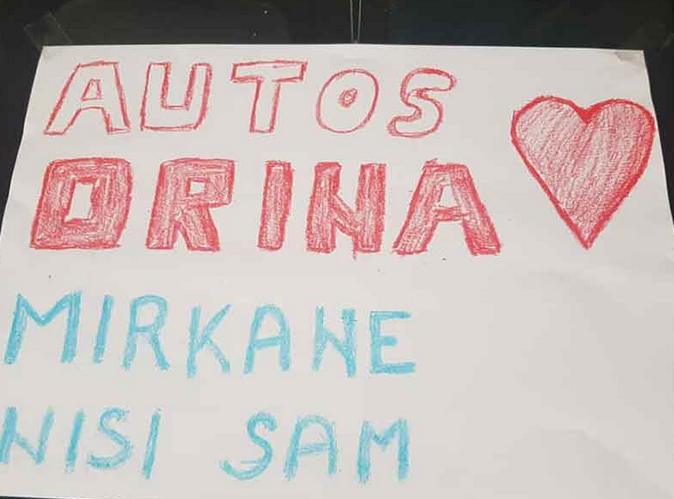 AUTOS
DRINA
MIRKANE
NISI SAM